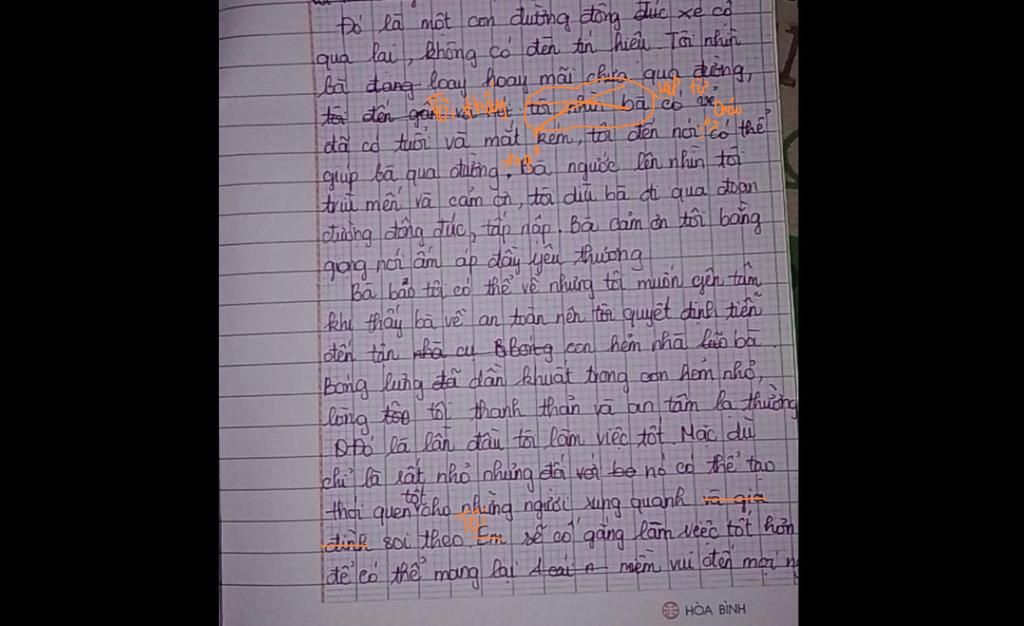 Đó là một con đường đông đúc xe cộ
qua lại, không có đèn tín hiệu. Tôi nhìn
bà đang loay hoay mãi chưa qua đường,
tôi đến gần tôi nhìn bà có vẻ
đã có tuổi và mắt kém, tôi đến nói có thể
giúp bà qua đường. Bà ngước lên nhìn tôi
trìu mến và cảm ơn, tôi dìu bà đi qua đoạn
đường đông đúc, tấp nập. Bà cảm ơn tôi bằng
giọng nói ấm áp đầy yêu thương
Bà bảo tôi có thể về nhưng tôi muốn yên tâm
khi thấy bà về an toàn nên tôi quyết định tiễn
đến tận nhà cụ con hẻm nhà bà.
Bóng lưng đã dần khuất trong con hẻm nhỏ,
lòng tôi thanh thản và an tâm lạ thường
Đó là lần đầu tôi làm việc tốt. Mặc dù
chỉ là rất nhỏ nhưng đối với nó có thể tạo
thói quen tốt cho những người xung quanh và gia
đình soi theo. Em sẽ cố gắng làm việc tốt hơn
để có thể mang lại niềm vui đến mọi
HÒA BÌNH